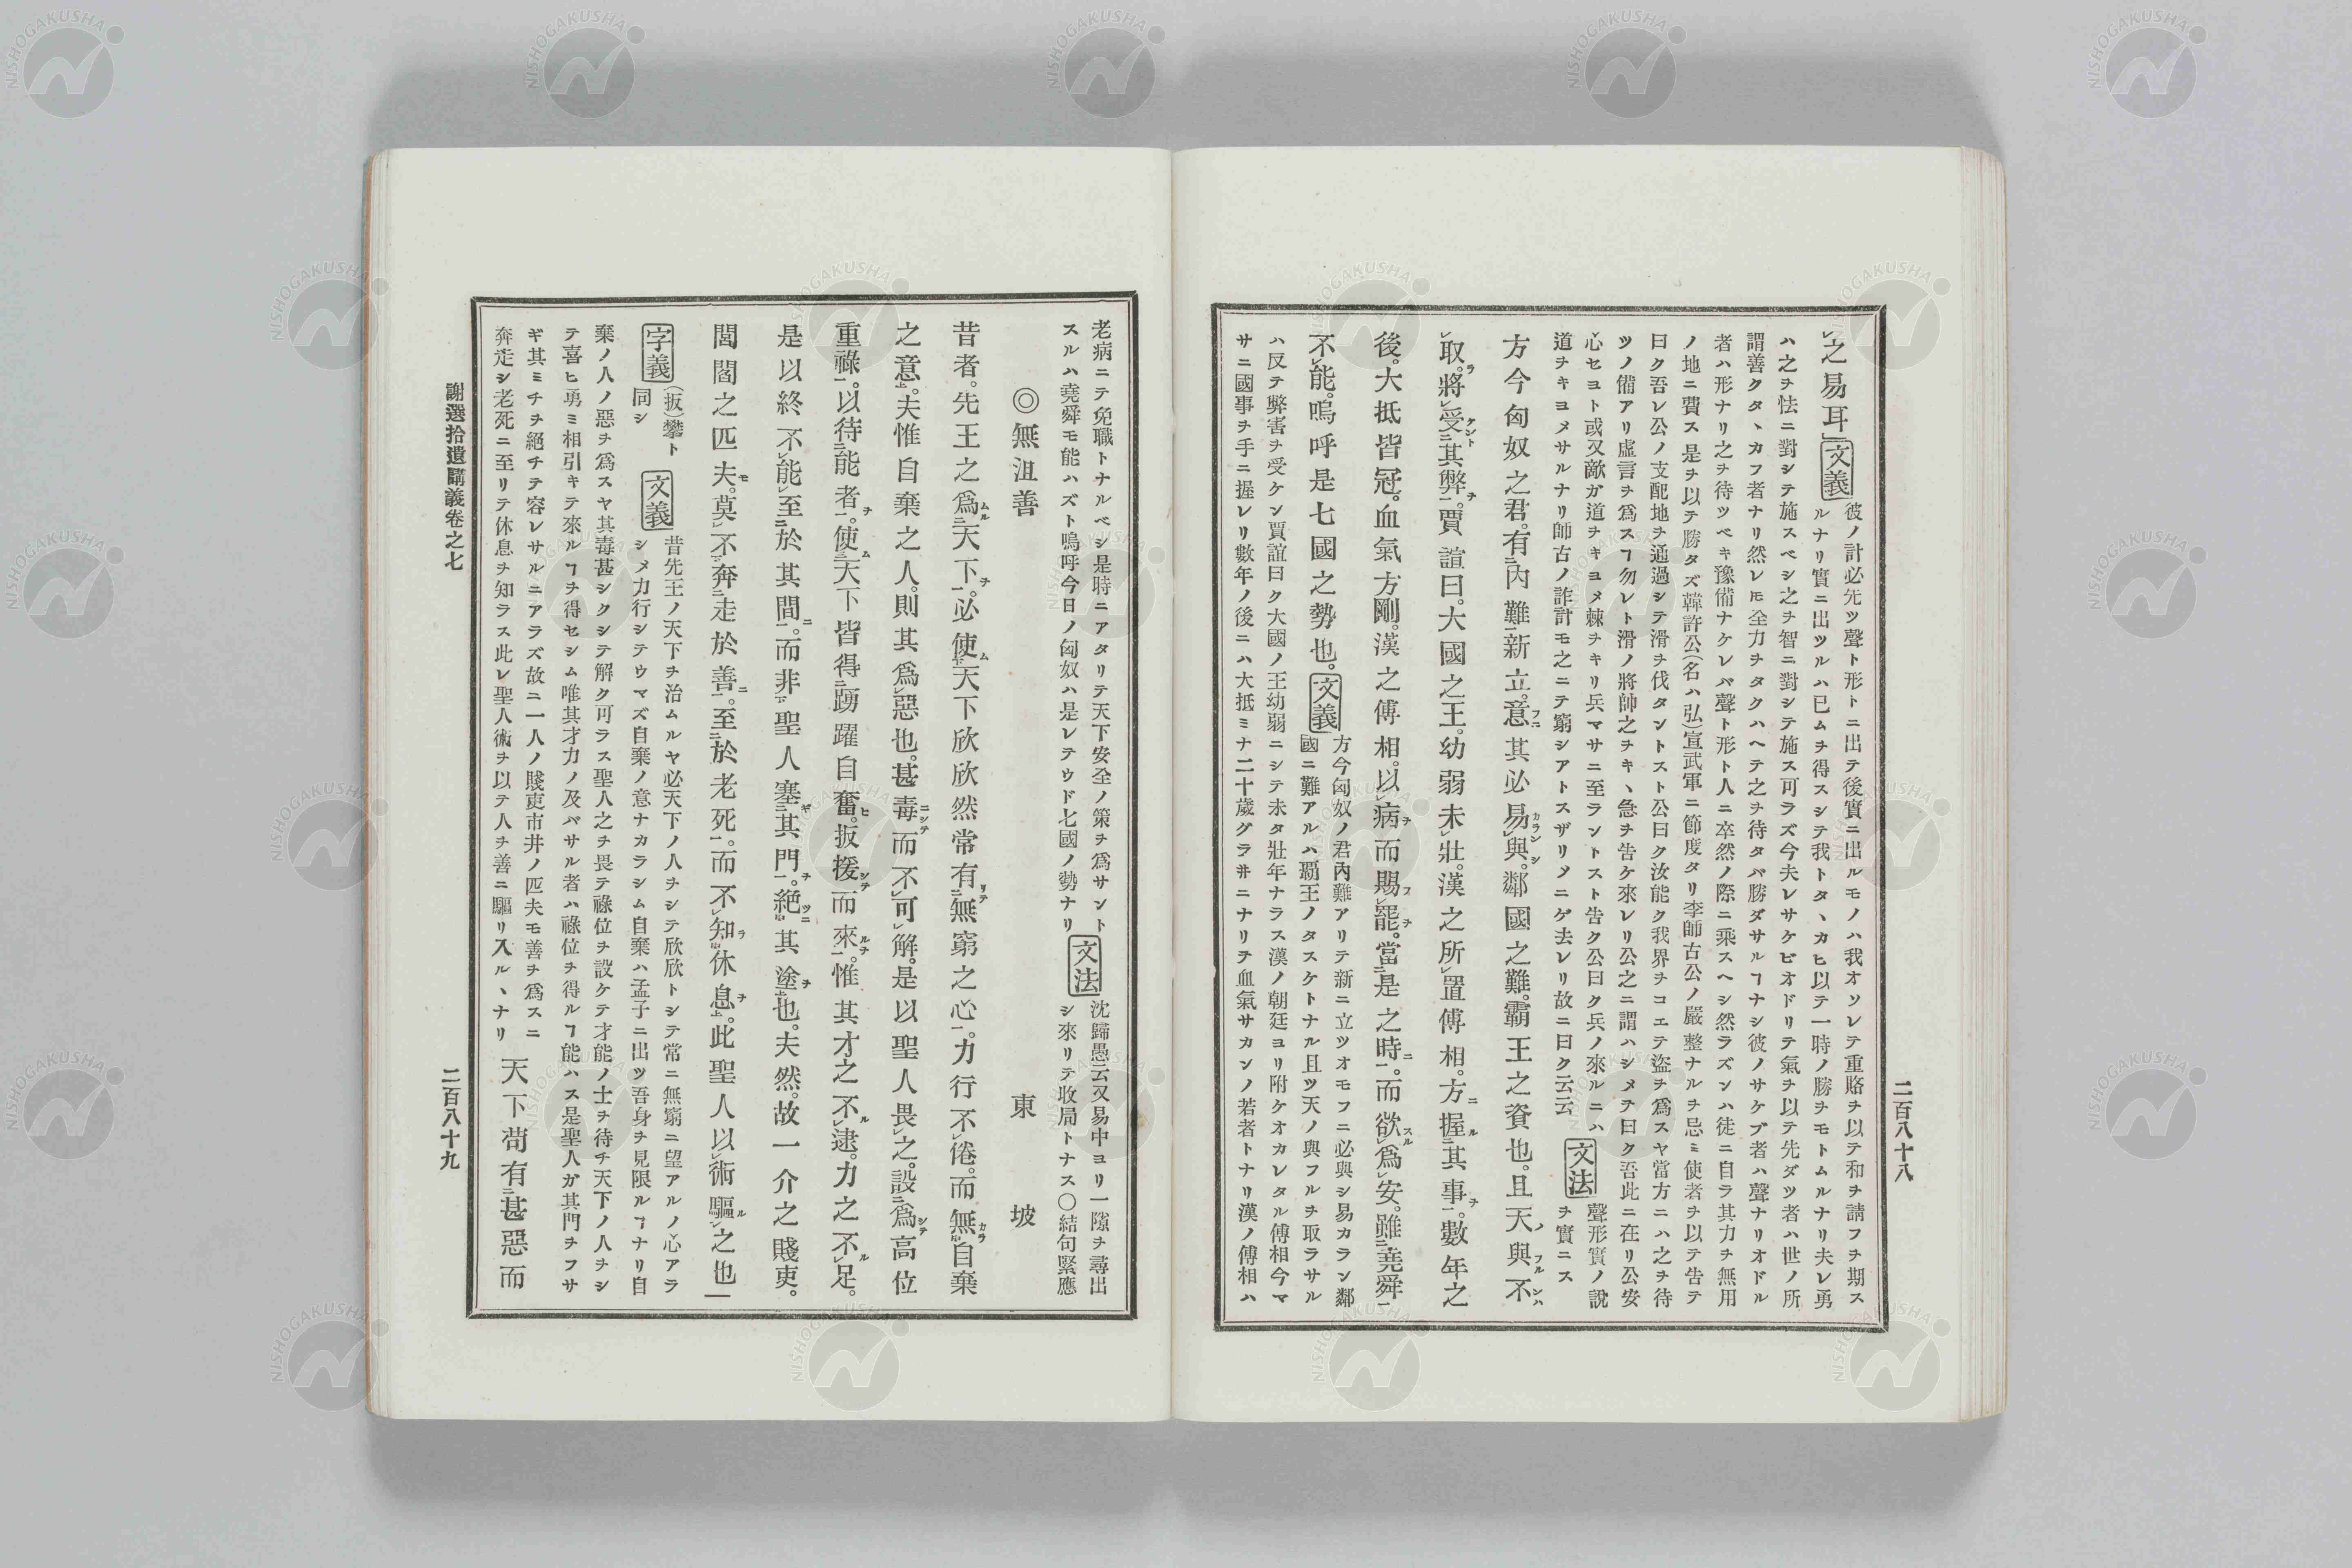 之易耳
文義
彼ノ計必先ツ聲ト形トニ出テ後實ニ出ルモノハ我オソレテ重賂ヲ以テ和ヲ請フヲ期ス
ルナリ實ニ出ツルハ已ムヲ得スシテ我トタヽカヒ以テ一時ノ勝ヲモトムルナリ夫レ勇
ハ之ヲ怯ニ對シテ施スベシ之ヲ智ニ對シテ施ス可ラズ今夫レサケビオドリテ氣ヲ以テ先ダツ者ハ世ノ所
謂善クタヽカフ者ナリ然レ𪜈全力ヲタクハヘテ之ヲ待タバ勝ダサルヿナシ彼ノサケブ者ハ聲ナリオドル
者ハ形ナリ之ヲ待ツベキ豫備ナケレバ聲ト形ト人ニ卒然ノ際ニ乘スヘシ然ラズンハ徒ニ自ラ其力ヲ無用
ノ地ニ費ス是ヲ以テ勝タズ韓許公(名ハ弘)宣武軍ニ節度タリ李師古公ノ嚴整ナルヲ忌ミ使者ヲ以テ告テ
曰ク吾レ公ノ支配地ヲ通過シテ滑ヲ伐タントスト公曰ク汝能ク我界ヲコエテ盜ヲ爲スヤ當方ニハ之ヲ待
ツノ備アリ虛言ヲ爲スヿ勿レト滑ノ將帥之ヲキヽ急ヲ告ケ來レリ公之ニ謂ハシメテ曰ク吾此ニ在リ公安
心セヨト或又敵カ道ヲキヨメ棘ヲキリ兵マサニ至ラントスト告ク公曰ク兵ノ來ルニハ
道ヲキヨメサルナリ師古ノ詐計モ之ニテ窮シアトスザリメニゲ去レリ故ニ曰ク云云
文法
聲形實ノ說
ヲ實ニス
方今匈奴之君。有內難新立。意其必易與。鄰國之難。霸王之資也。且天與不
取。將受其弊。賈誼曰。大國之王。幼弱未壯。漢之所置傅相。方握其事。數年之
後。大抵皆冠。血氣方剛。漢之傅相。以病而賜罷。當是之時。而欲爲安。雖堯舜
不能。嗚呼是七國之勢也。
文義
方今匈奴ノ君內難アリテ新ニ立ツオモフニ必與シ易カラン鄰
國ニ難アルハ覇王ノタスケトナル且ツ天ノ與フルヲ取ラサル
ハ反テ弊害ヲ受ケン賈誼曰ク大國ノ王幼弱ニシテ未タ壯年ナラス漢ノ朝廷ヨリ附ケオカレタル傅相今マ
サニ國事ヲ手ニ握レリ數年ノ後ニハ大抵ミナ二十歲グラ井ニナリテ血氣サカンノ若者トナリ漢ノ傅相ハ
二百八十八
老病ニテ免職トナルベシ是時ニアタリテ天下安全ノ策ヲ爲サント
スルハ堯舜モ能ハズト嗚呼今日ノ匈奴ハ是レテウド七國ノ勢ナリ
文法
沈歸愚云又易中ヨリ一隙ヲ尋出
シ來リテ收局トナス〇結句緊應
◎無沮善
東坡
昔者。先王之爲天下。必使天下欣欣然常有無窮之心。力行不倦。而無自棄
之意。夫惟自棄之人。則其爲惡也。甚毒而不可解。是以聖人畏之。設爲高位
重祿。以待能者。使天下皆得踴躍自奮。扳援而來。惟其才之不逮。力之不足。
是以終不能至於其間。而非聖人塞其門。絕其塗也。夫然。故一介之賤吏。
閭閻之匹夫。莫不奔走於善。至於老死。而不知休息。此聖人以術驅之也
字義
(扳)攀ト
同シ
文義
昔先王ノ天下ヲ治ムルヤ必天下ノ人ヲシテ欣欣トシテ常ニ無窮ニ望アルノ心アラ
シメ力行シテウマズ自棄ノ意ナカラシム自棄ハ孟子ニ出ツ吾身ヲ見限ルヿナリ自
棄ノ人ノ惡ヲ爲スヤ其毒甚シクシテ解ク可ラス聖人之ヲ畏テ祿位ヲ設ケテ才能ノ士ヲ待チ天下ノ人ヲシ
テ喜ヒ勇ミ相引キテ來ルヿヲ得セシム唯其才力ノ及バサル者ハ祿位ヲ得ルヿ能ハス是聖人カ其門ヲフサ
ギ其ミチヲ絕チテ容レサルニアラズ故ニ一人ノ賤吏市井ノ匹夫モ善ヲ爲スニ
奔走シ老死ニ至リテ休息ヲ知ラス此レ聖人術ヲ以テ人ヲ善ニ驅リ入ルヽナリ
天下苟有甚惡而
謝選拾遺講義卷之七
二百八十九